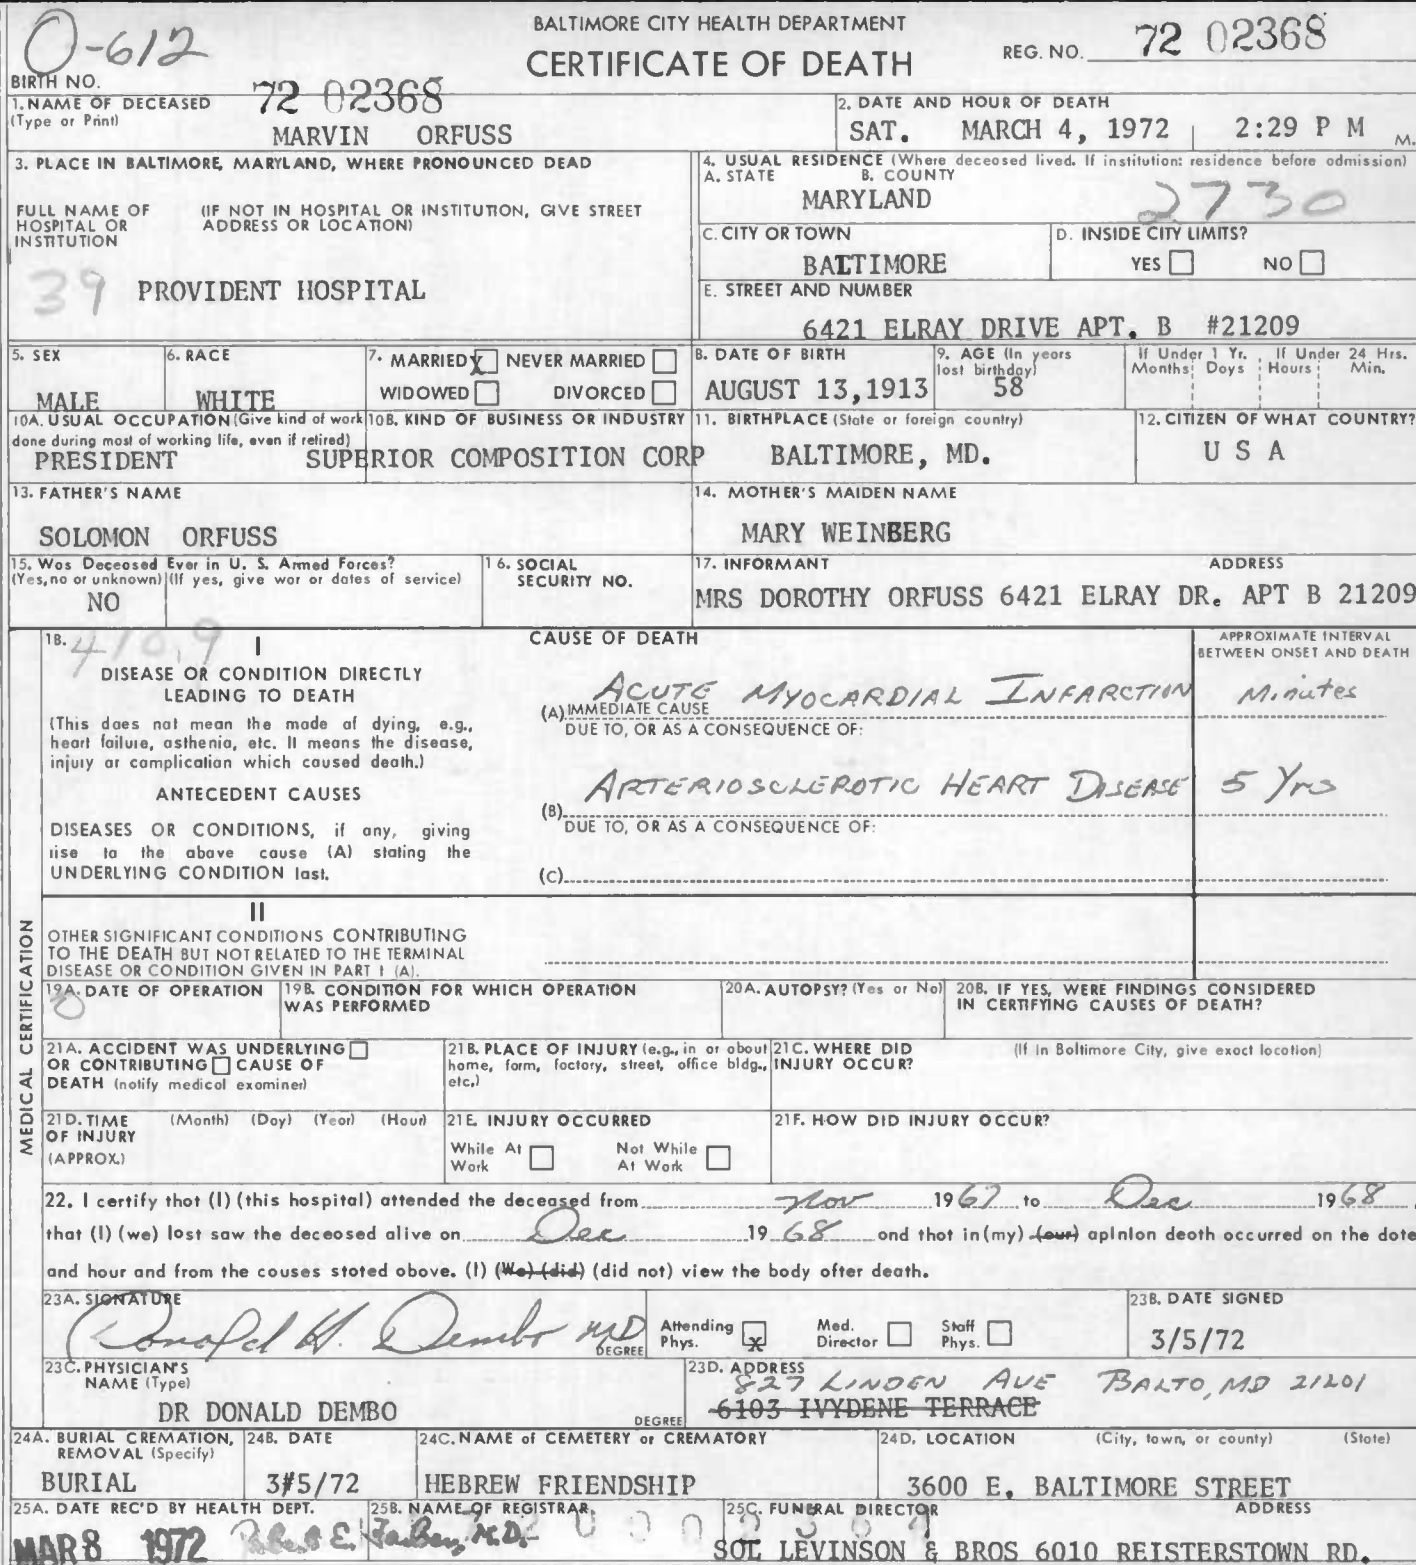 O-612
BALTIMORE CITY HEALTH DEPARTMENT
CERTIFICATE OF DEATH
REG. NO. 72 02368
BIRTH NO.
72 02368
1. NAME OF DECEASED
(Type or Print)
MARVIN ORFUSS
2. DATE AND HOUR OF DEATH
SAT. MARCH 4, 1972 2:29 P M M.
3. PLACE IN BALTIMORE, MARYLAND, WHERE PRONOUNCED DEAD
FULL NAME OF HOSPITAL OR INSTITUTION
(IF NOT IN HOSPITAL OR INSTITUTION, GIVE STREET ADDRESS OR LOCATION)
39 PROVIDENT HOSPITAL
4. USUAL RESIDENCE (Where deceased lived. If institution: residence before admission)
A. STATE B. COUNTY
MARYLAND 2730
C. CITY OR TOWN
BALTIMORE
D. INSIDE CITY LIMITS?
YES NO
E. STREET AND NUMBER
6421 ELRAY DRIVE APT. B #21209
5. SEX
MALE
6. RACE
WHITE
7. MARRIED X NEVER MARRIED
WIDOWED DIVORCED
8. DATE OF BIRTH
AUGUST 13,1913
9. AGE (In years last birthday)
58
If Under 1 Yr. If Under 24 Hrs.
Months Days Hours Min.
10A. USUAL OCCUPATION (Give kind of work done during most of working life, even if retired)
PRESIDENT
10B. KIND OF BUSINESS OR INDUSTRY
SUPERIOR COMPOSITION CORP
11. BIRTHPLACE (State or foreign country)
BALTIMORE, MD.
12. CITIZEN OF WHAT COUNTRY?
U S A
13. FATHER'S NAME
SOLOMON ORFUSS
14. MOTHER'S MAIDEN NAME
MARY WEINBERG
15. Was Deceased Ever in U. S. Armed Forces?
(Yes, no or unknown) (If yes, give war or dates of service)
NO
16. SOCIAL SECURITY NO.
17. INFORMANT ADDRESS
MRS DOROTHY ORFUSS 6421 ELRAY DR. APT B 21209
18. 410.9
I
DISEASE OR CONDITION DIRECTLY
LEADING TO DEATH
(This does not mean the mode of dying, e.g.,
heart failure, asthenia, etc. It means the disease,
injury or complication which caused death.)
ANTECEDENT CAUSES
DISEASES OR CONDITIONS, if any, giving
rise to the above cause (A) stating the
UNDERLYING CONDITION last.
CAUSE OF DEATH
APPROXIMATE INTERVAL
BETWEEN ONSET AND DEATH
ACUTE MYOCARDIAL INFARCTION Minutes
(A) IMMEDIATE CAUSE
DUE TO, OR AS A CONSEQUENCE OF:
ARTERIOSCLEROTIC HEART DISEASE 5 Yrs
(B)
DUE TO, OR AS A CONSEQUENCE OF:
(C)
II
OTHER SIGNIFICANT CONDITIONS CONTRIBUTING
TO THE DEATH BUT NOT RELATED TO THE TERMINAL
DISEASE OR CONDITION GIVEN IN PART I (A).
MEDICAL CERTIFICATION
19A. DATE OF OPERATION
0
19B. CONDITION FOR WHICH OPERATION
WAS PERFORMED
20A. AUTOPSY? (Yes or No)
20B. IF YES, WERE FINDINGS CONSIDERED
IN CERTIFYING CAUSES OF DEATH?
21A. ACCIDENT WAS UNDERLYING
OR CONTRIBUTING CAUSE OF
DEATH (notify medical examiner)
21B. PLACE OF INJURY (e.g., in or about
home, farm, factory, street, office bldg.,
etc.)
21C. WHERE DID (If in Baltimore City, give exact location)
INJURY OCCUR?
21D. TIME (Month) (Day) (Year) (Hour)
OF INJURY
(APPROX.)
21E. INJURY OCCURRED
While At Work Not While At Work
21F. HOW DID INJURY OCCUR?
22. I certify that (I) (this hospital) attended the deceased from Nov 1967 to Dec 1968
that (I) (we) last saw the deceased alive on Dec 19 68 and that in (my) (our) opinion death occurred on the date
and hour and from the causes stated above. (I) (We) (did) (did not) view the body after death.
23A. SIGNATURE
Donald H. Dembo MD
DEGREE
Attending Phys. X Med. Director Staff Phys.
23B. DATE SIGNED
3/5/72
23C. PHYSICIAN'S
NAME (Type)
DR DONALD DEMBO
DEGREE
23D. ADDRESS
827 LINDEN AVE BALTO, MD 21201
6103 IVYDENE TERRACE
24A. BURIAL CREMATION,
REMOVAL (Specify)
BURIAL
24B. DATE
3#5/72
24C. NAME of CEMETERY or CREMATORY
HEBREW FRIENDSHIP
24D. LOCATION (City, town, or county) (State)
3600 E. BALTIMORE STREET
25A. DATE REC'D BY HEALTH DEPT.
MAR 8 1972
25B. NAME OF REGISTRAR
Robert E. Farber, M.D.
25C. FUNERAL DIRECTOR ADDRESS
SOL LEVINSON & BROS 6010 REISTERSTOWN RD.